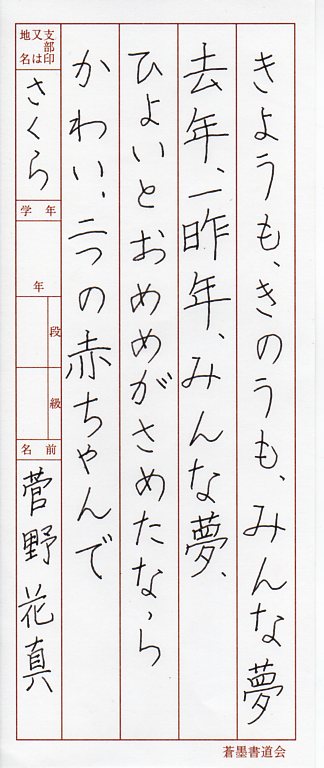 きようも、きのうも、みんな夢
去年、一昨年、みんな夢、
ひよいとおめめがさめたなら
かわい、二つの赤ちゃんで
支部印
又は
地名
さくら
学年
年
段
級
名前
菅野花真
蒼墨書道会